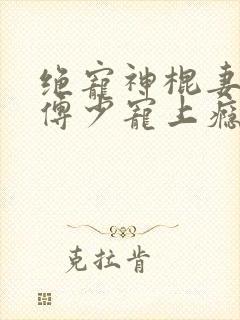 绝宠神棍妻
傅少宠上瘾
克拉肯